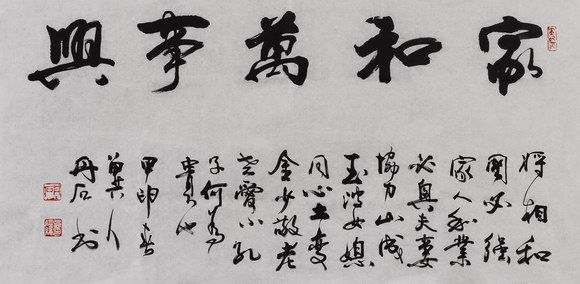 家和萬事興
將相和
國必强
家人和業
必興夫妻
協力山成
玉婆媳
同心土变
金少敬老
老愛小孔
子何為
貴也
丹石书